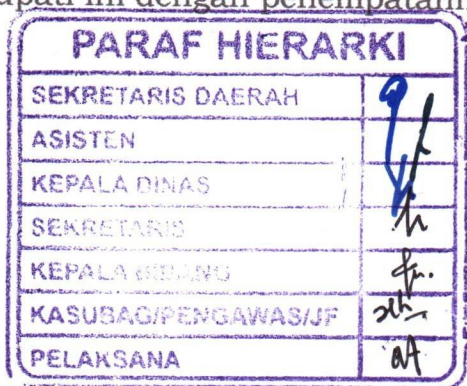 ini dengan penempatan
PARAF HIERARKI
SEKRETARIS DAERAH
ASISTEN
KEPALA DINAS
SEKRETARIS
KEPALA BIDANG
KASUBAG/PENGAWAS/JF
PELAKSANA